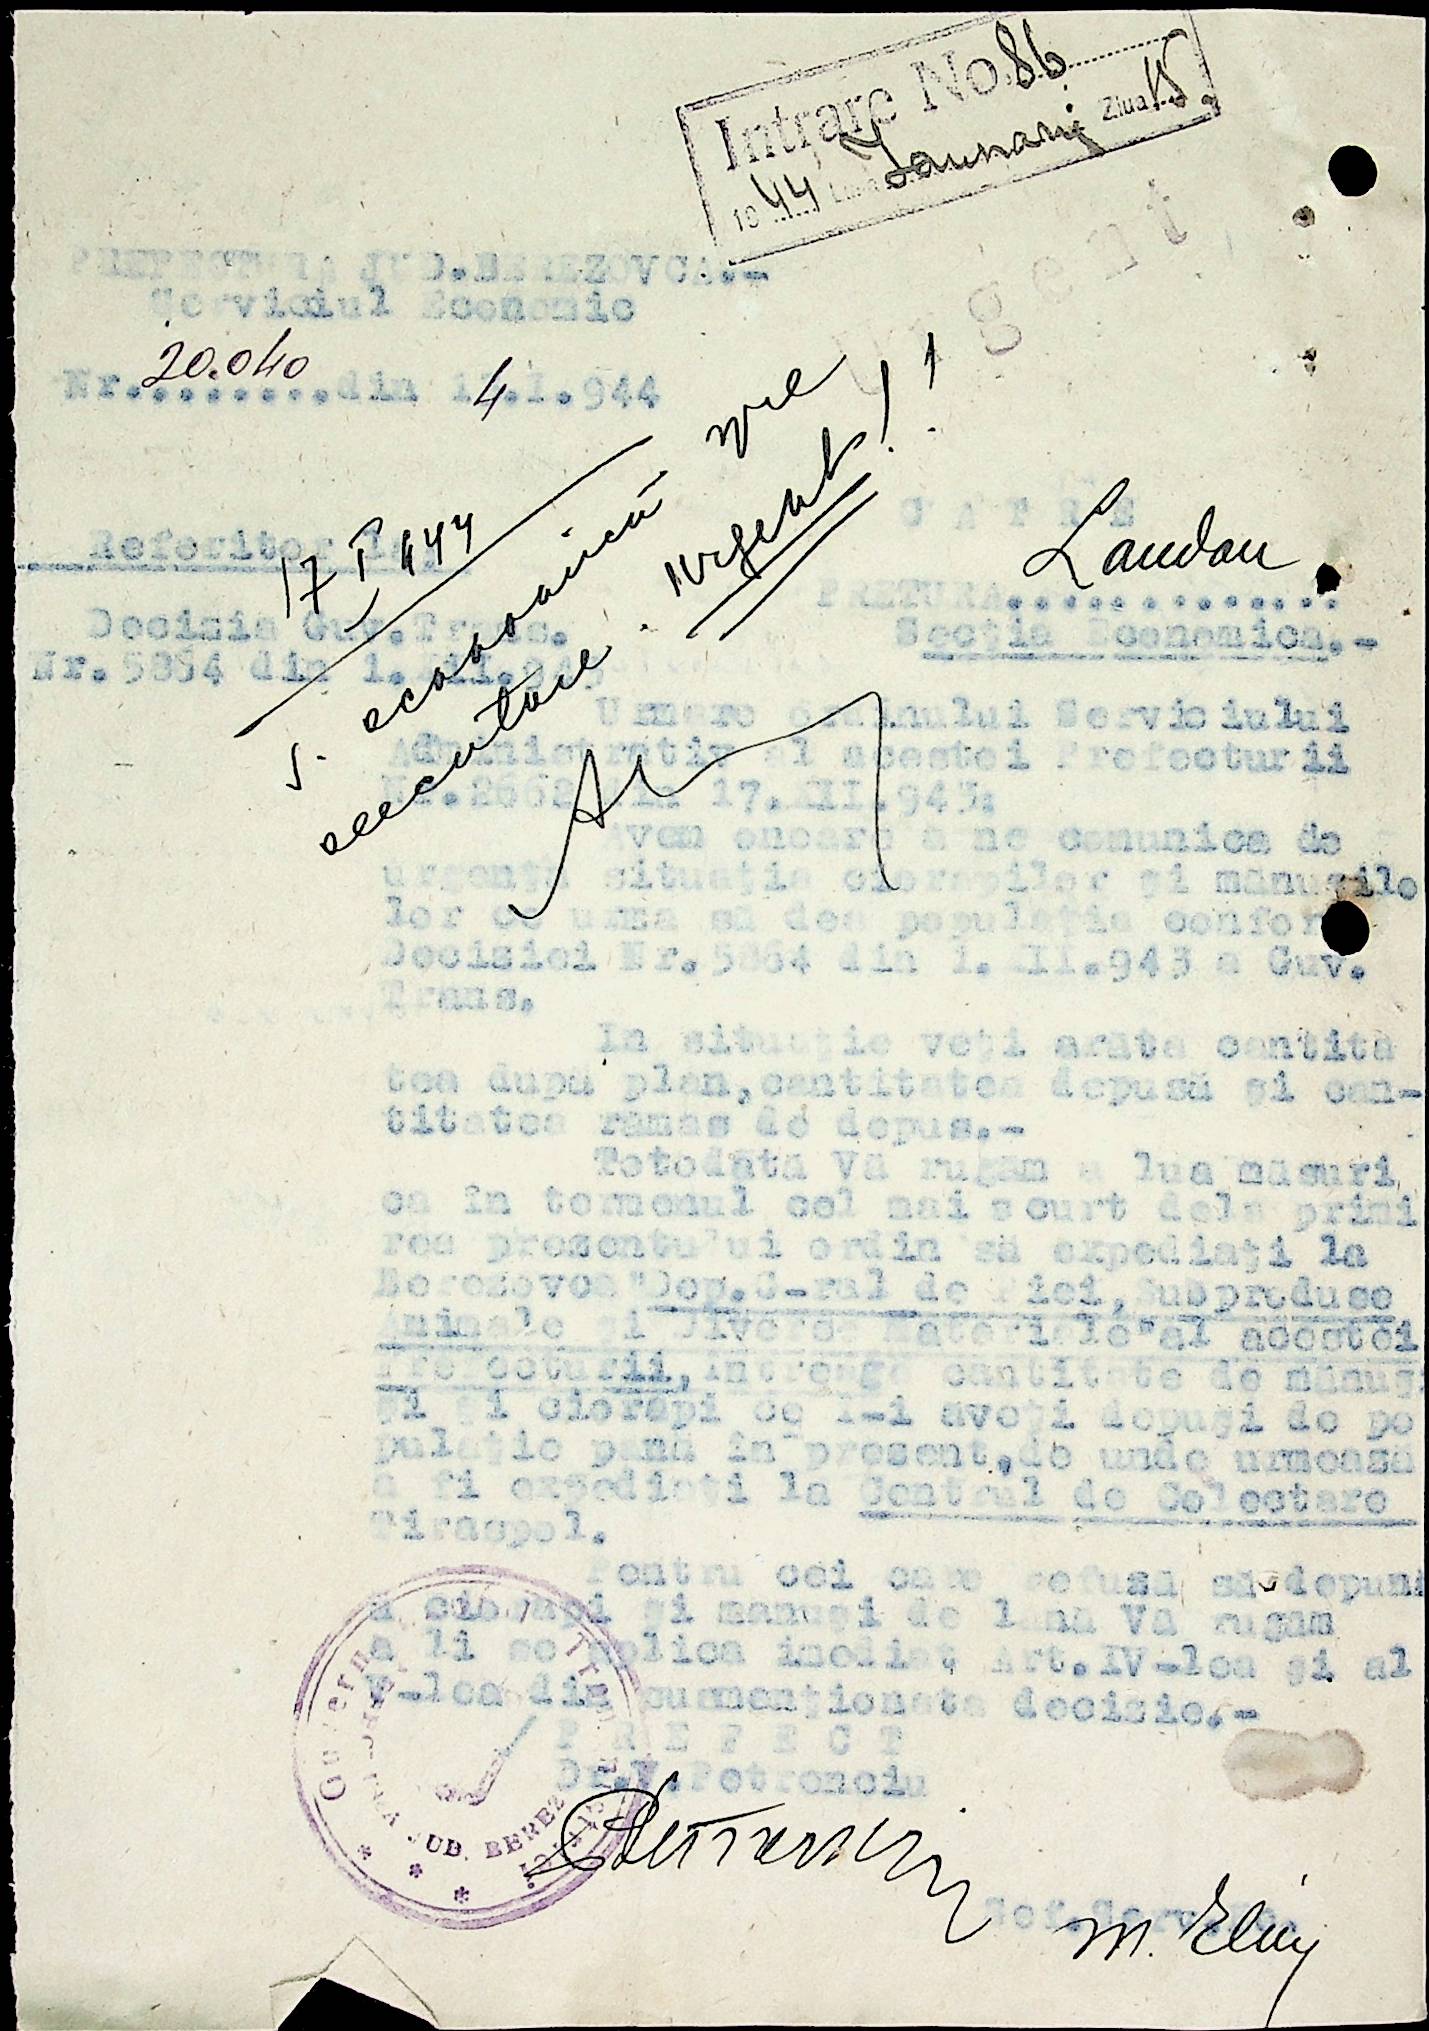 Intrare No. 86
1944 Luna Ianuarie Ziua 15
Urgent
PREFECTURA JUD.BEREZOVCA.-
Serviciul Economic
Nr. 20.040 din 14.I.944
17 I 944
s. economică spre
executare. Urgent!!
CATRE
Referitor la
PRETURA Landau
Secția Economica.-
Decizia Guv.Trans.
Nr.5864 din 1.XII.943
Urmare ordinului Serviciului
Administrativ al acestei Prefecturii
Nr.2662 din 17.XII.943:
Avem onoare a ne comunica de
urgență situația ciorapilor și mănușile
lor ce urma să dea populația conform
Decisiei Nr.5864 din 1.XII.943 a Guv.
Trans.
In situație veți arăta cantită
tea după plan,cantitatea depusă și can-
titatea rămas de depus.-
Totodată Vă rugăm a lua măsuri
ca în termenul cel mai scurt dela primi
rea prezentului ordin să expediați la
Berezovca "Dep.G-ral de Piei,Subproduse
Animale și Diverse Materiale"al acestei
Prefecturii,întreaga cantitate de mănuși
și și ciorapi ce i-i aveți depuși de po
pulație pană în present,de unde urmează
a fi expediați la Central de Colectare
Tiraspol.
Pentru cei care refusă să depună
a ciorapi și manuși de lană Vă rugăm
a li se aplica imediat Art.IV-lea și al
V-lea din susmenționata decizie.-
PREFECT
Dr.V.Petrenciu
Guvern
JUD. BEREZ
Șef.Serv.